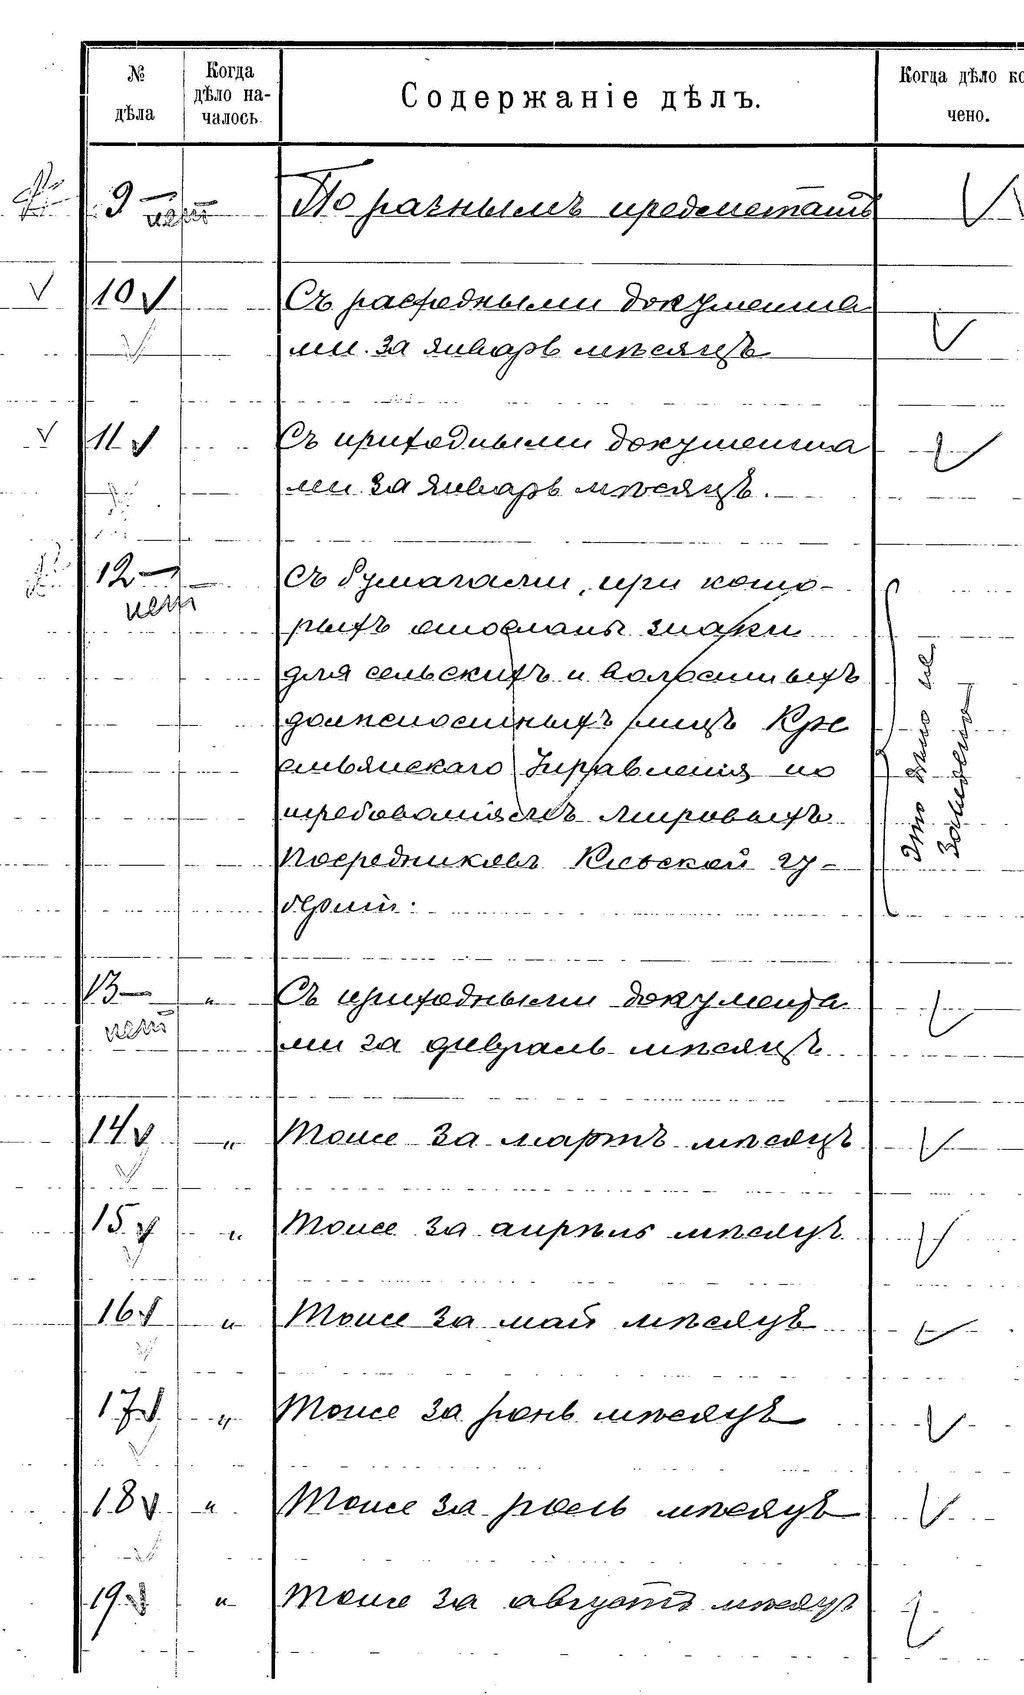 № дѣла
Когда дѣло на-
чалось.
Содержаніе дѣлъ.
Когда дѣло ко
чено.
9 — нетъ
По разнымъ предметамъ
10 V
Съ расходными документа
ми за январь мѣсяцъ
11 V
Съ приходными документа
ми за январь мѣсяцъ.
12 —
нет
Съ бумагами, при кото-
рыхъ отосланы знаки
для сельскихъ и волостныхъ
должностныхъ лицъ Кре
стьянскаго Управленія по
требованіямъ мировыхъ
Посредниковъ Кіевской гу-
берніи.
Это дело не
заведено
13 —
нет
"
Съ приходными документа
ми за февраль мѣсяцъ
14 V
"
Тоже за мартъ мѣсяцъ
15 V
"
Тоже за апрѣль мѣсяцъ
16 V
"
Тоже за май мѣсяцъ
17 V
"
Тоже за іюнь мѣсяцъ
18 V
"
Тоже за іюль мѣсяцъ
19 V
"
Тоже за августъ мѣсяцъ